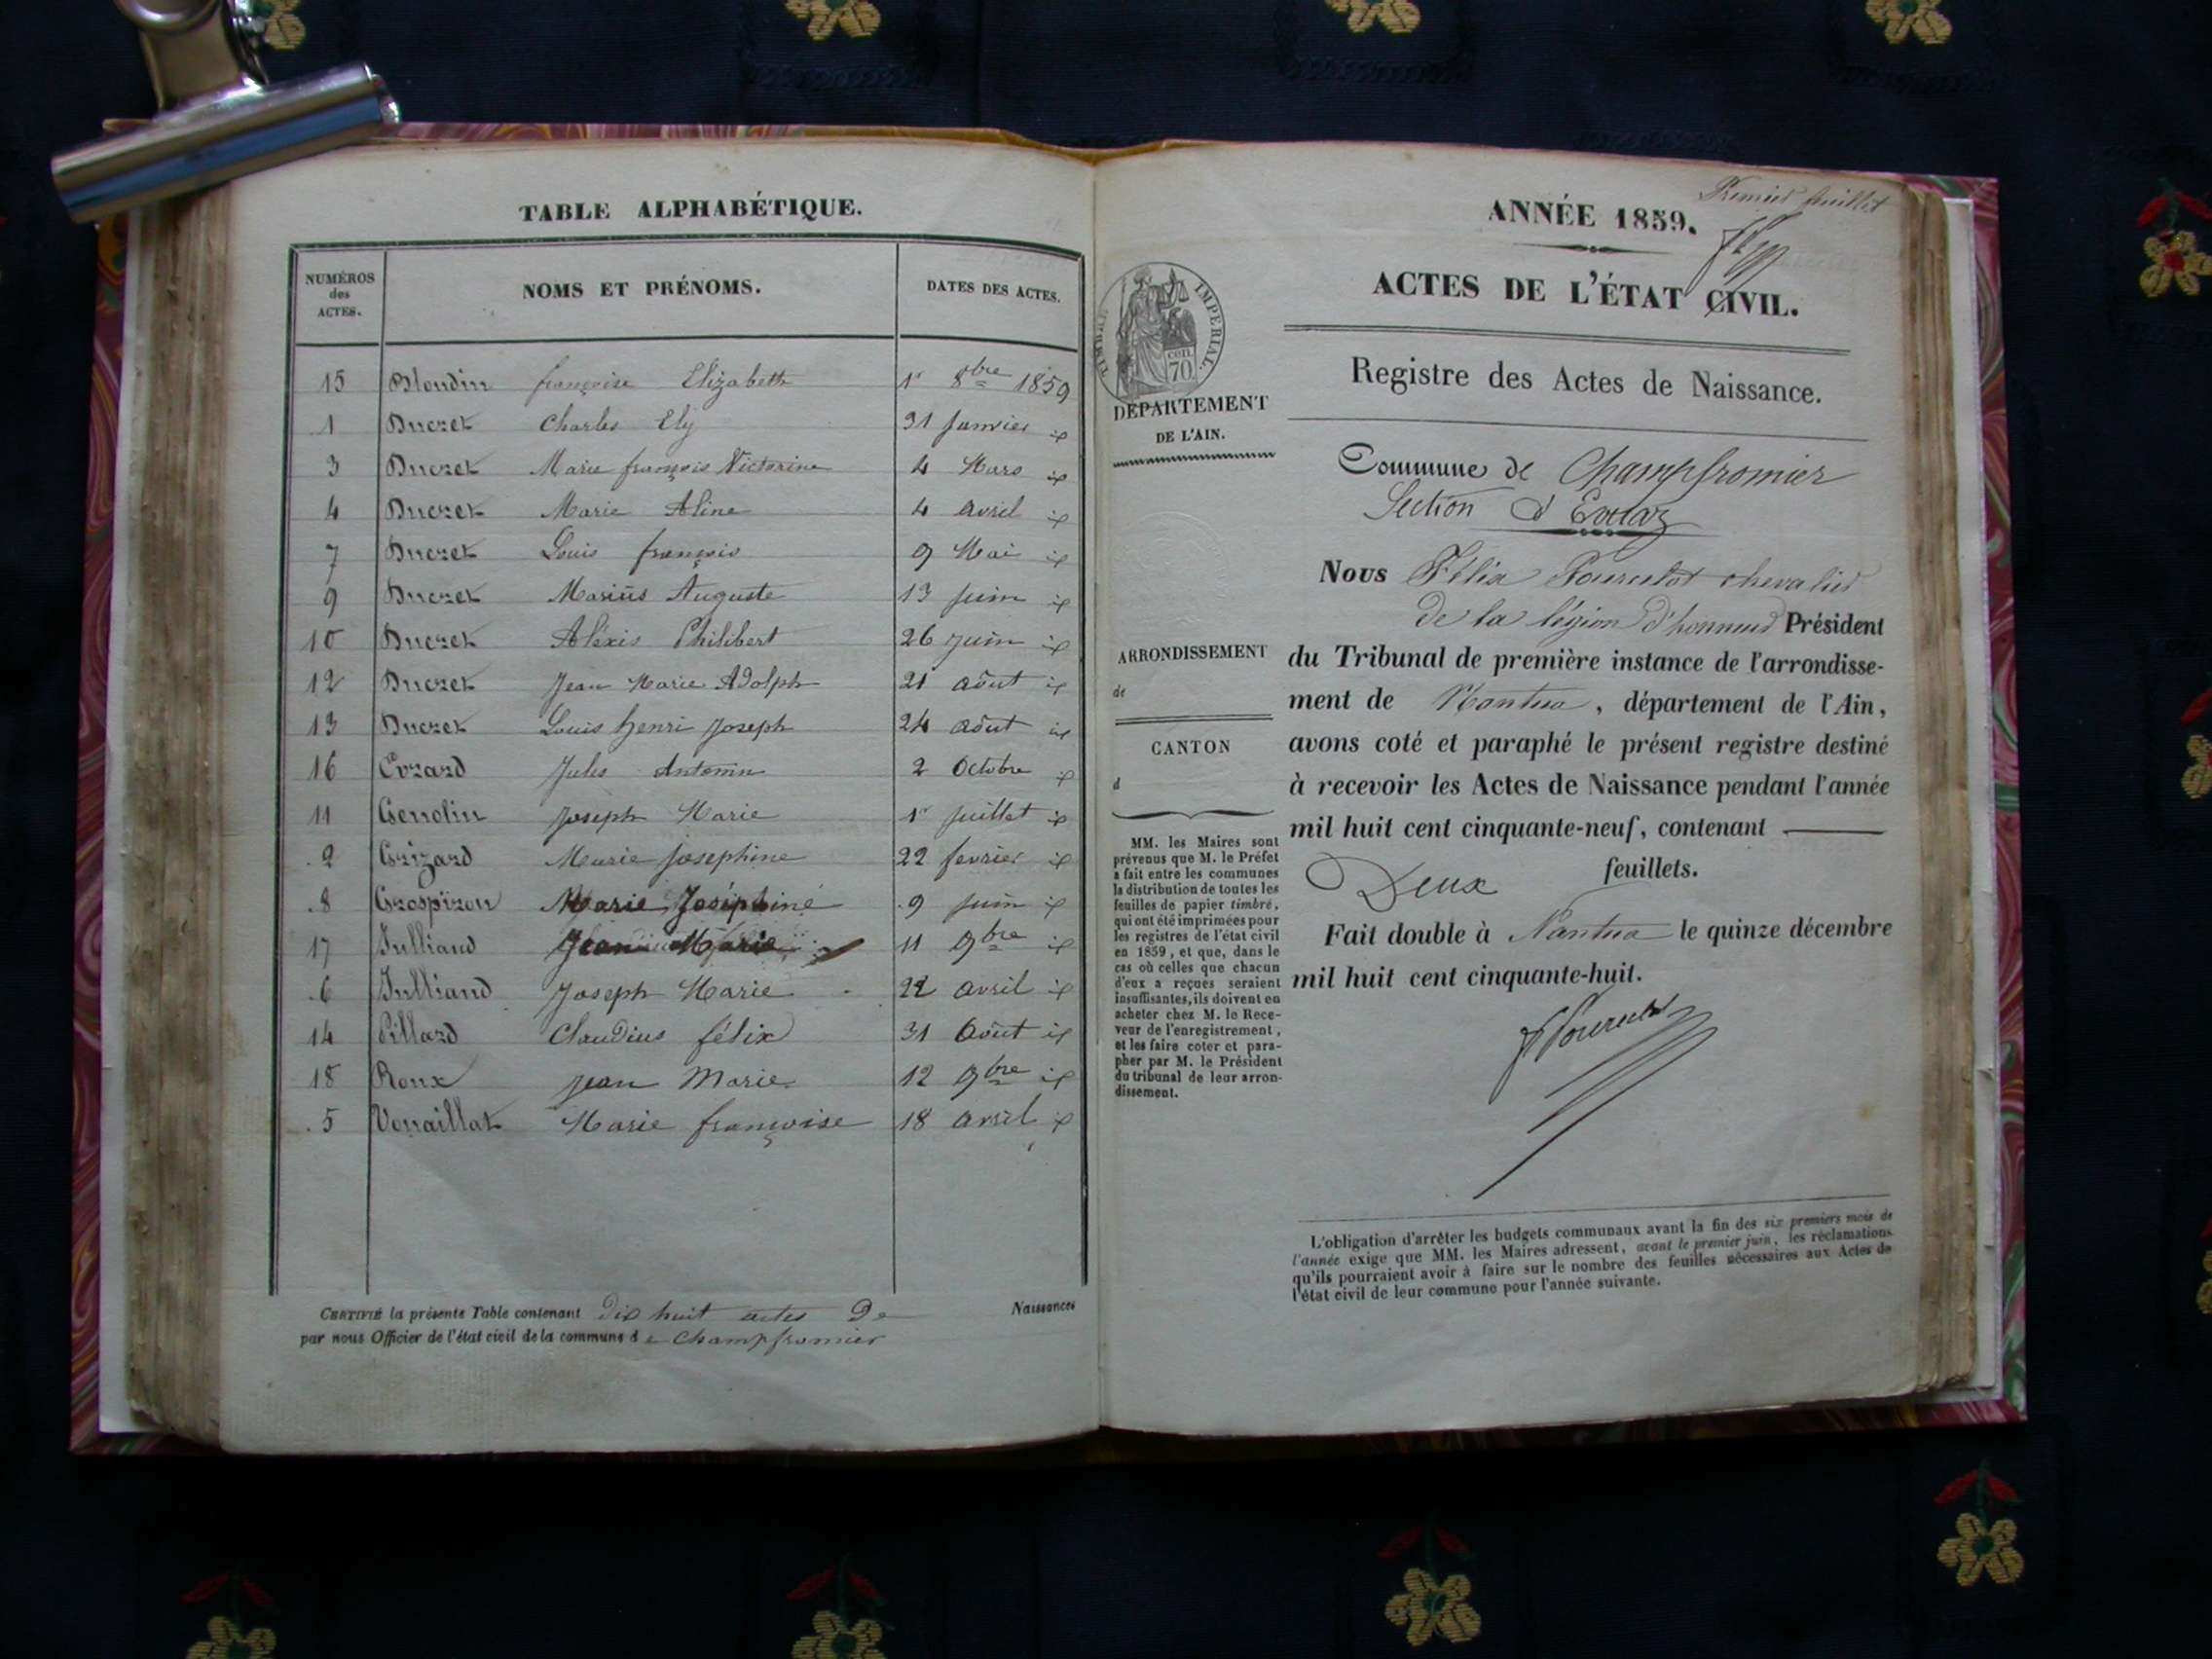 TABLE ALPHABÉTIQUE.
NUMÉROS
des
ACTES.
NOMS ET PRÉNOMS.
DATES DES ACTES.
15 Blondin françoise Elizabeth 1r 8bre 1859
1 Ducret Charles Ely 31 Janvier id
3 Ducret Marie françois Victorine 4 Mars id
4 Ducret Marie Aline 4 avril id
7 Ducret Louis françois 9 Mai id
9 Ducret Marius Auguste 13 juin id
10 Ducret Aléxis Philibert 26 juin id
12 Ducret Jean Marie Adolph 21 aôut id
13 Ducret Louis henri Joseph 24 aôut id
16 Evrard Jules Antonin 2 Octobre id
11 Genolin Joseph Marie 1r juillet id
2 Grizard Marie josephine 22 fevrier id
8 Grospiron Marie Joséphine 9 juin id
17 Julliand Jean Marie 11 9bre id
6 Julliand Joseph Marie 22 avril id
14 Pillard Claudius félix 31 Aôut id
18 Roux jean Marie 12 9bre id
5 Vouaillat Marie françoise 18 avril id
CERTIFIÉ la présente Table contenant dix huit actes De Naissances
par nous Officier de l'état civil de la commune de Champfromier
Premier feuillet
ANNÉE 1859.
ACTES DE L'ÉTAT CIVIL.
TIMBRE IMPÉRIAL
CEN.
70
DÉPARTEMENT
DE L'AIN.
ARRONDISSEMENT
de
CANTON
d
MM. les Maires sont
prévenus que M. le Préfet
a fait entre les communes
la distribution de toutes les
feuilles de papier timbré,
qui ont été imprimées pour
les registres de l'état civil
en 1859, et que, dans le
cas où celles que chacun
d'eux a reçues seraient
insuffisantes, ils doivent en
acheter chez M. le Rece-
veur de l'enregistrement,
et les faire coter et para-
pher par M. le Président
du tribunal de leur arron-
dissement.
Registre des Actes de Naissance.
Commune de Champfromier
Section d'Evuaz
Nous Félix Pourcelot chevalier
de la légion d'honneur Président
du Tribunal de première instance de l'arrondisse-
ment de Nantua, département de l'Ain,
avons coté et paraphé le présent registre destiné
à recevoir les Actes de Naissance pendant l'année
mil huit cent cinquante-neuf, contenant
Deux feuillets.
Fait double à Nantua le quinze décembre
mil huit cent cinquante-huit.
L'obligation d'arrêter les budgets communaux avant la fin des six premiers mois de
l'année exige que MM. les Maires adressent, avant le premier juin, les réclamations
qu'ils pourraient avoir à faire sur le nombre des feuilles nécessaires aux Actes de
l'état civil de leur commune pour l'année suivante.